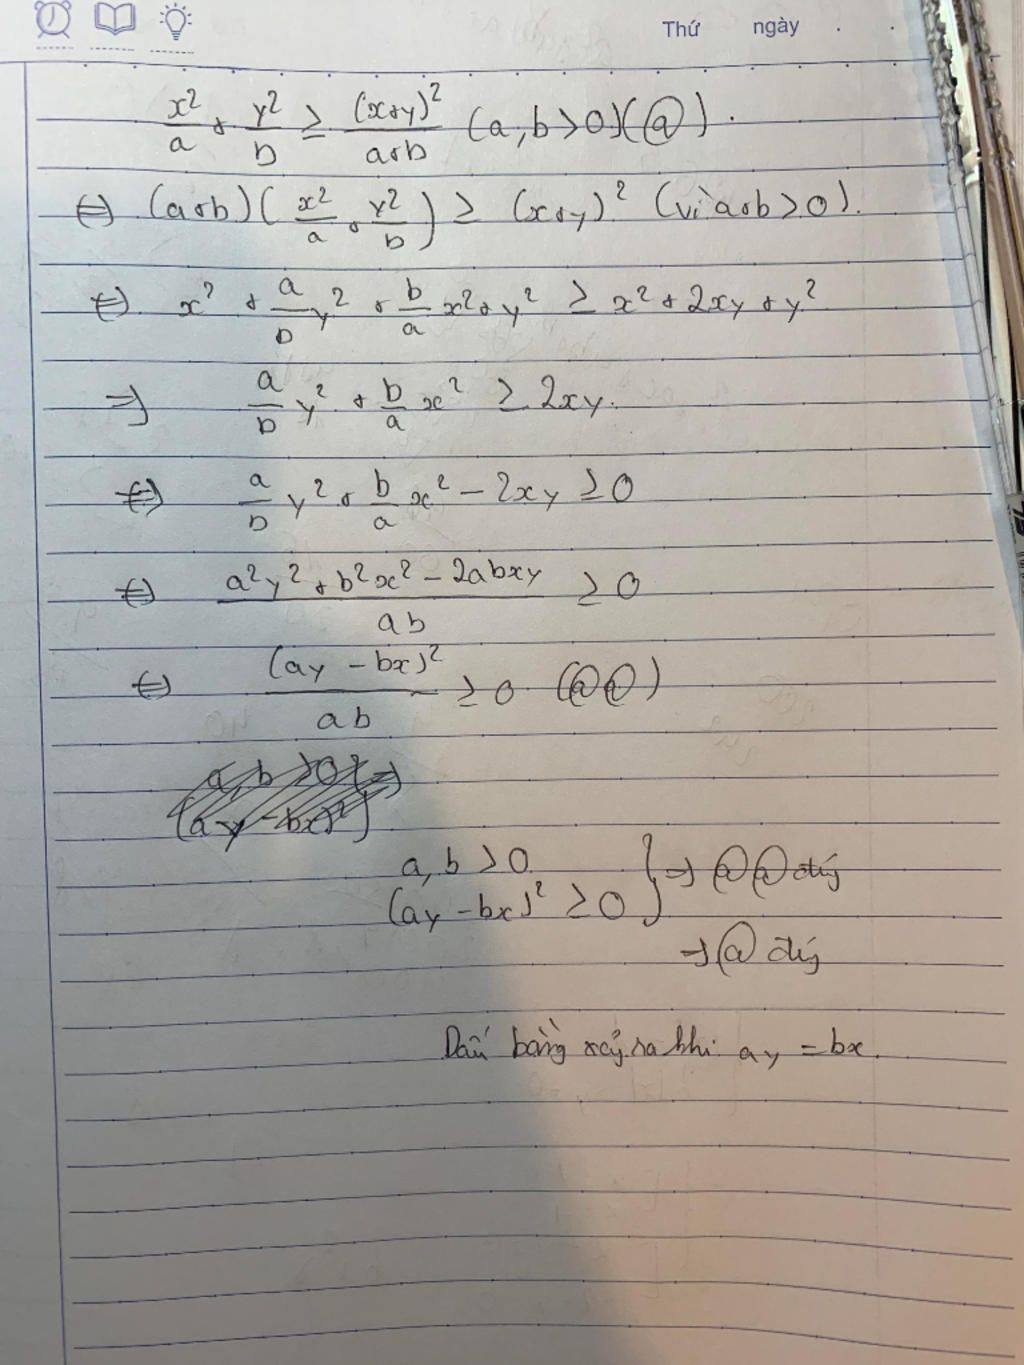 Thứ ngày . .
x²/a + y²/b ≥ (x+y)²/a+b (a, b > 0)(@).
⇔ (a+b)(x²/a + y²/b) ≥ (x+y)² (vì a+b > 0).
⇔ x² + a/b y² + b/a x² + y² ≥ x² + 2xy + y²
⇒ a/b y² + b/a x² ≥ 2xy.
⇔ a/b y² + b/a x² - 2xy ≥ 0
⇔ a²y² + b²x² - 2abxy/ab ≥ 0
⇔ (ay - bx)²/ab ≥ 0 (@@)
a, b > 0
(ay - bx)² ≥ 0 } ⇒ @@ đúg
⇒ @ đúg
Dấu bằng xảy ra khi ay = bx.